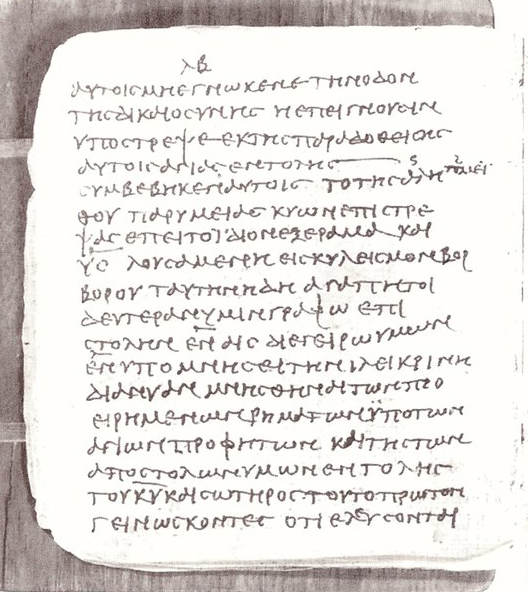 λβ
αυτοις μη εγνωκενε την οδον
της δικαιοσυνης η επειγνουσιν
υποστρεψε εκ της παραδοθεισης
αυτοις αγιας εντολης
συμβεβηκεν αυτοις το της αλη
θου παρυμειας κυων επιστρε
ψας επει το ϊδιον εξεραμα και
ϋς λουσαμενη εις κυλεισμον βορ
βορου ταυτην ηδη αγαπητοι
δευτεραν υμιν γραφω επι
στολην εν αις διεγειρω υμων
εν υπομνησει την ιλεικρινη
διανυαν μνησθηναι των προ
ειρημενων ρηματων ϋπο των
αγιων προφητων και της των
αποστολων υμων εντολης
του κυ και σωτηρος τουτο πρωτον
γεινωσκοντες οτι ελευσονται